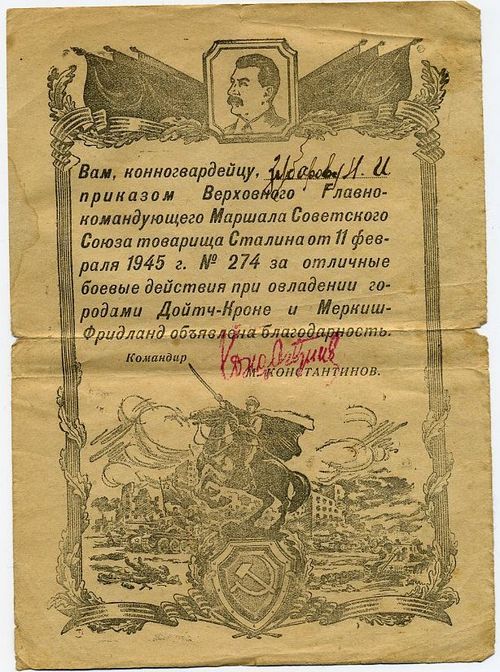 Вам, конногвардейцу, И. И
приказом Верховного Главно-
командующего Маршала Советского
Союза товарища Сталина от 11 фев-
раля 1945 г. № 274 за отличные
боевые действия при овладении го-
родами Дойтч-Кроне и Меркиш-
Фридланд объявлена благодарность.
Командир
М. КОНСТАНТИНОВ.